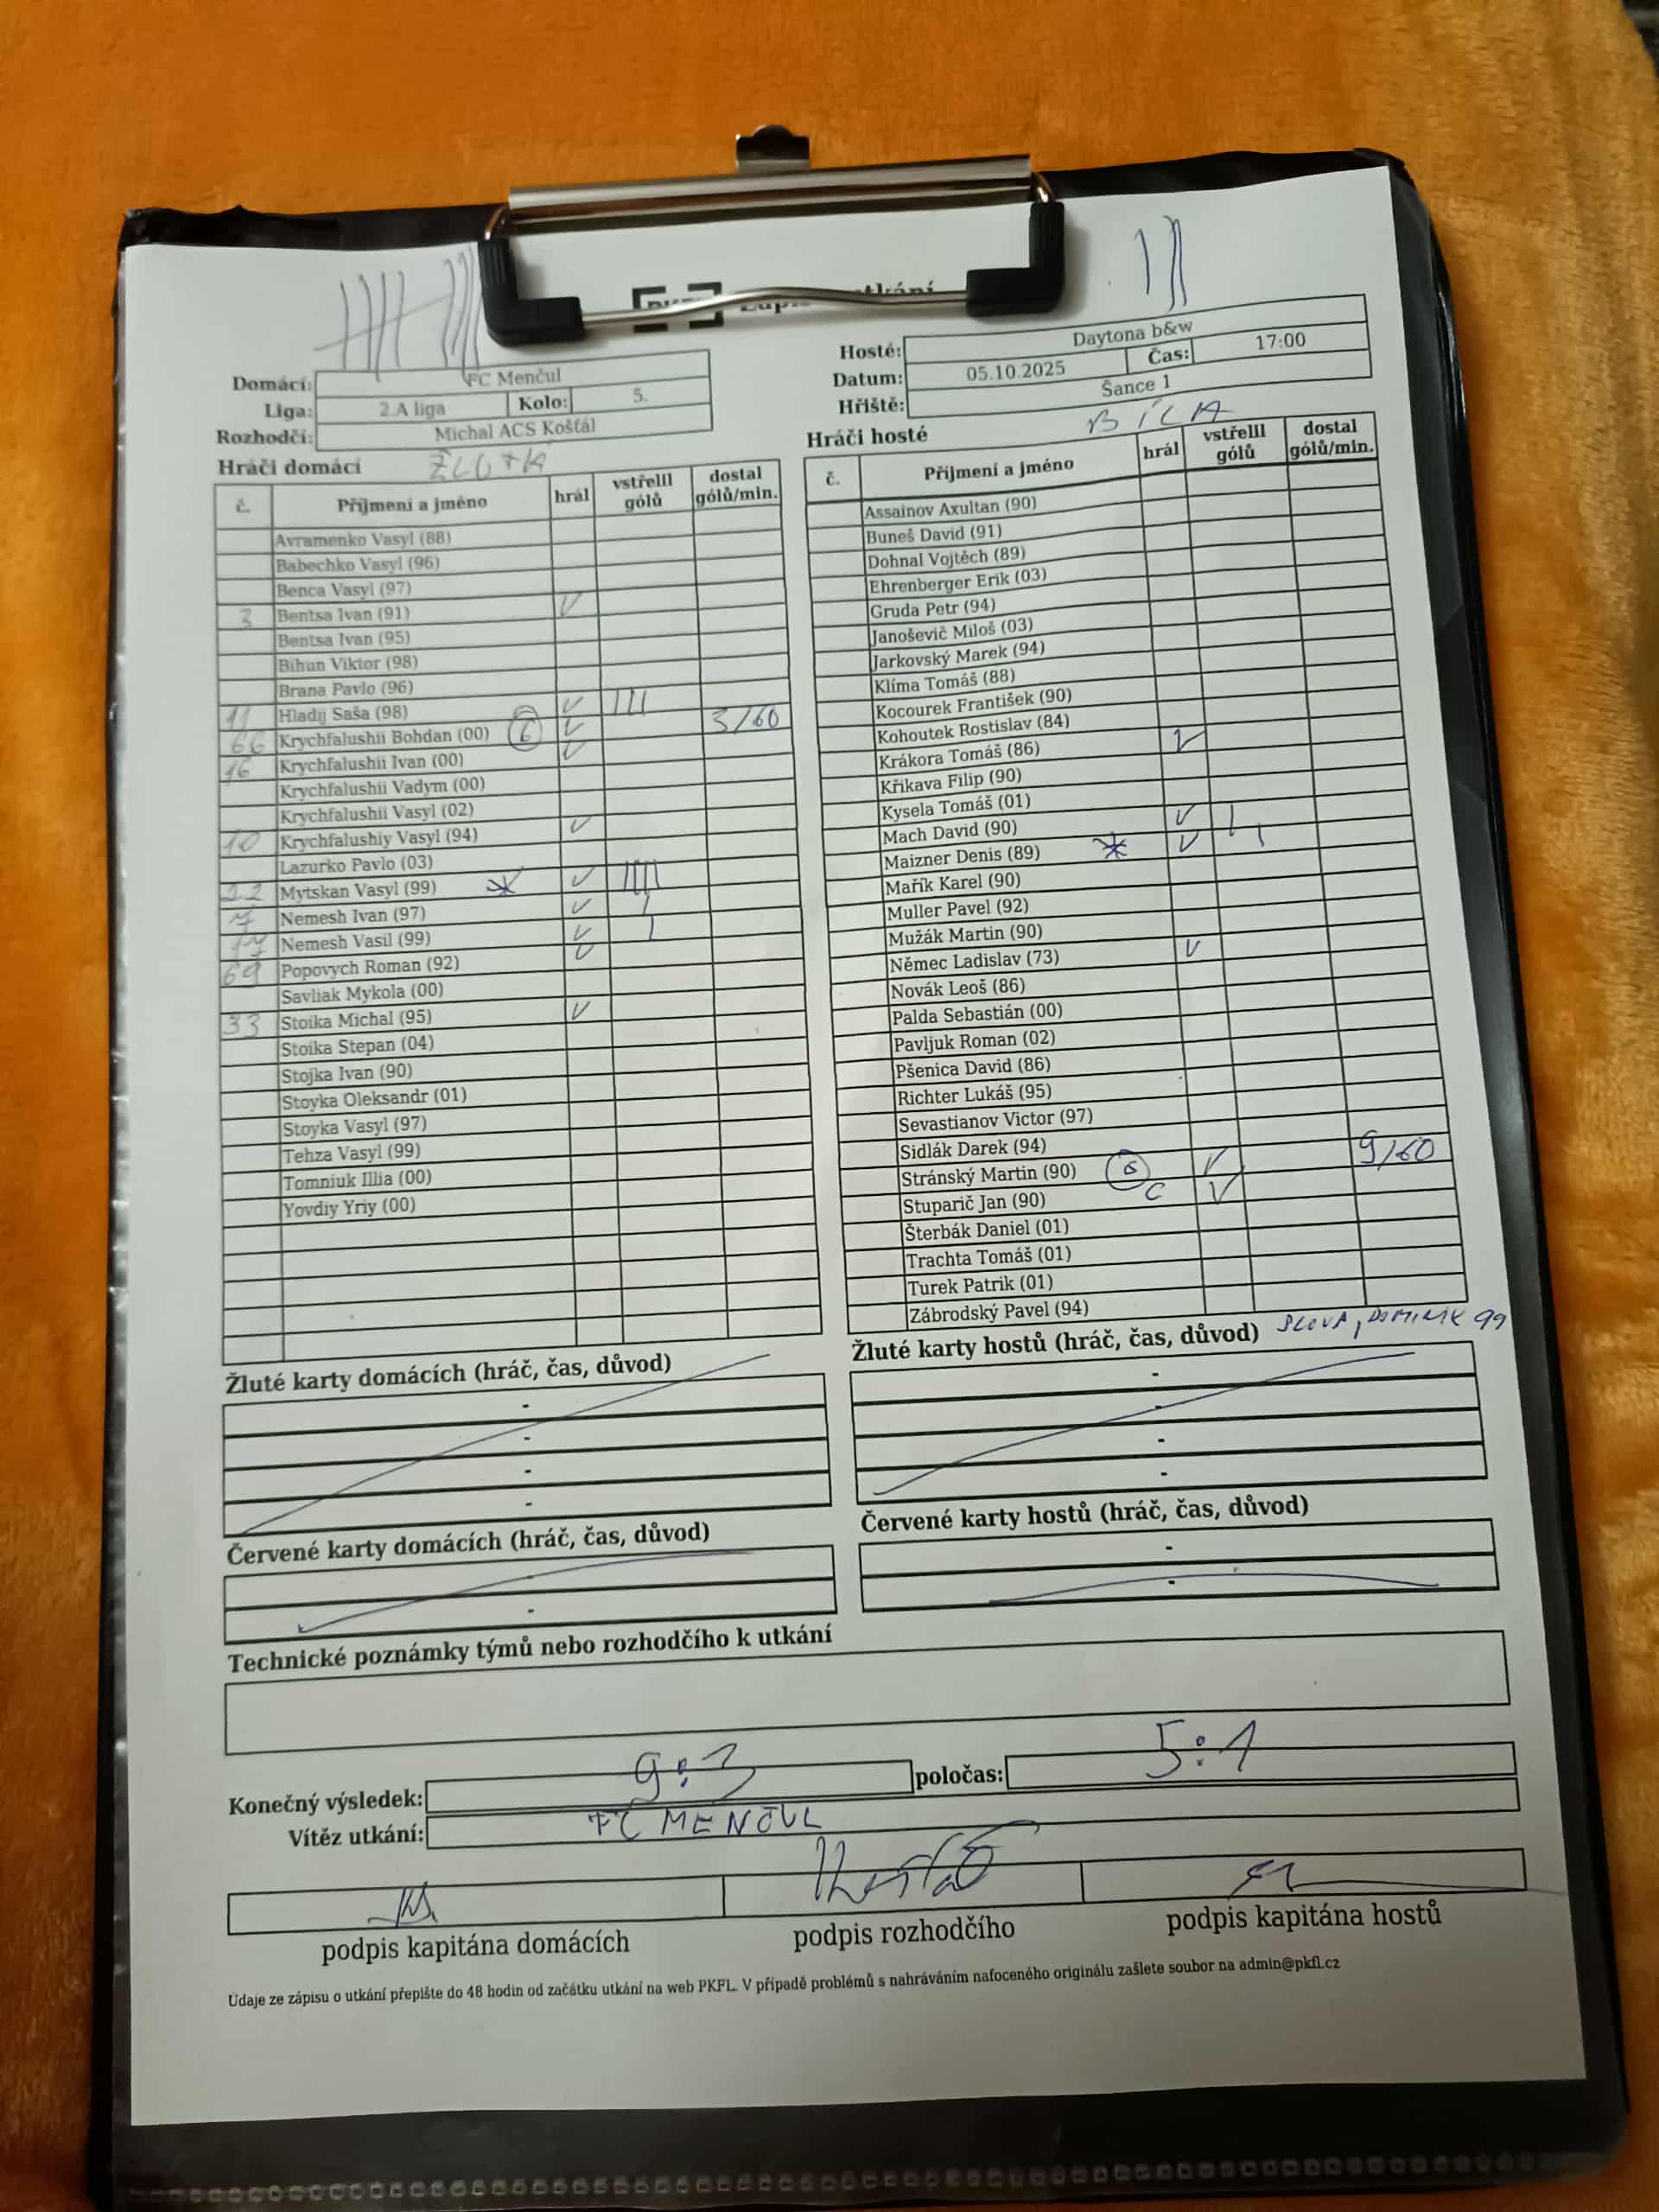 Domácí: FC Menčul
Liga: 2.A liga Kolo: 5.
Rozhodčí: Michal ACS Košťál
Hosté: Daytona b&w
Datum: 05.10.2025 Čas: 17:00
Hřiště: Šance 1
Hráči domácí ŽLUTÁ
č. Příjmení a jméno hrál vstřelil gólů dostal gólů/min.
Avramenko Vasyl (88)
Babechko Vasyl (96)
Benca Vasyl (97)
3 Bentsa Ivan (91) V
Bentsa Ivan (95)
Bihun Viktor (98)
Brana Pavlo (96)
11 Hladij Saša (98) V III
66 Krychfalushii Bohdan (00) G V 3/60
16 Krychfalushii Ivan (00) V
Krychfalushii Vadym (00)
Krychfalushii Vasyl (02)
10 Krychfalushiy Vasyl (94) V
Lazurko Pavlo (03)
22 Mytskan Vasyl (99) * V IIII
7 Nemesh Ivan (97) V I
17 Nemesh Vasil (99) V I
69 Popovych Roman (92) V
Savliak Mykola (00)
33 Stoika Michal (95) V
Stoika Stepan (04)
Stojka Ivan (90)
Stoyka Oleksandr (01)
Stoyka Vasyl (97)
Tehza Vasyl (99)
Tomniuk Illia (00)
Yovdiy Yriy (00)
Hráči hosté BÍLÁ
č. Příjmení a jméno hrál vstřelil gólů dostal gólů/min.
Assainov Axultan (90)
Buneš David (91)
Dohnal Vojtěch (89)
Ehrenberger Erik (03)
Gruda Petr (94)
Janoševič Miloš (03)
Jarkovský Marek (94)
Klíma Tomáš (88)
Kocourek František (90)
Kohoutek Rostislav (84)
Krákora Tomáš (86) V
Křikava Filip (90)
Kysela Tomáš (01)
Mach David (90) V I
Maizner Denis (89) * V I
Mařík Karel (90)
Muller Pavel (92)
Mužák Martin (90)
Němec Ladislav (73) V
Novák Leoš (86)
Palda Sebastián (00)
Pavljuk Roman (02)
Pšenica David (86)
Richter Lukáš (95)
Sevastianov Victor (97)
Sidlák Darek (94)
Stránský Martin (90) G V 9/60
Stuparič Jan (90) C V
Šterbák Daniel (01)
Trachta Tomáš (01)
Turek Patrik (01)
Zábrodský Pavel (94)
DOMINIK 99
Žluté karty domácích (hráč, čas, důvod)
-
-
-
-
Žluté karty hostů (hráč, čas, důvod)
-
-
-
-
Červené karty domácích (hráč, čas, důvod)
-
-
Červené karty hostů (hráč, čas, důvod)
-
-
Technické poznámky týmů nebo rozhodčího k utkání
Konečný výsledek: 9:3 poločas: 5:1
Vítěz utkání: FC MENČUL
podpis kapitána domácích
podpis rozhodčího
podpis kapitána hostů
Údaje ze zápisu o utkání přepište do 48 hodin od začátku utkání na web PKFL. V případě problémů s nahráváním nafoceného originálu zašlete soubor na admin@pkfl.cz